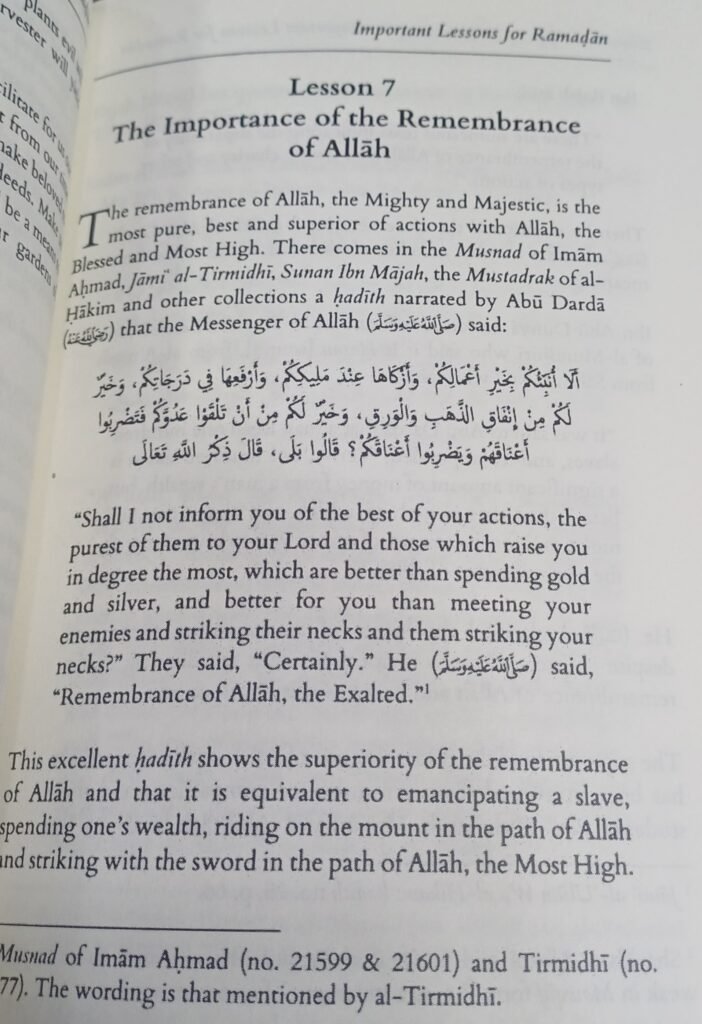 plants evil
rvester will
cilitate for us
t from our
make beloved
deeds. Make
be a mean
r garden
Important Lessons for Ramaḍān
Lesson 7
The Importance of the Remembrance
of Allāh
The remembrance of Allāh, the Mighty and Majestic, is the
most pure, best and superior of actions with Allāh, the
Blessed and Most High. There comes in the Musnad of Imām
Aḥmad, Jāmiʿ al-Tirmidhī, Sunan Ibn Mājah, the Mustadrak of al-
Ḥākim and other collections a ḥadīth narrated by Abū Dardā
(رضي الله عنه) that the Messenger of Allāh (صلى الله عليه وسلم) said:
أَلَا أُنَبِّئُكُمْ بِخَيْرِ أَعْمَالِكُمْ، وَأَزْكَاهَا عِنْدَ مَلِيكِكُمْ، وَأَرْفَعِهَا فِي دَرَجَاتِكُمْ، وَخَيْرٌ
لَكُمْ مِنْ إِنْفَاقِ الذَّهَبِ وَالْوَرِقِ، وَخَيْرٌ لَكُمْ مِنْ أَنْ تَلْقَوْا عَدُوَّكُمْ فَتَضْرِبُوا
أَعْنَاقَهُمْ وَيَضْرِبُوا أَعْنَاقَكُمْ؟ قَالُوا بَلَى، قَالَ ذِكْرُ اللَّهِ تَعَالَى
“Shall I not inform you of the best of your actions, the
purest of them to your Lord and those which raise you
in degree the most, which are better than spending gold
and silver, and better for you than meeting your
enemies and striking their necks and them striking your
necks?” They said, “Certainly.” He (صلى الله عليه وسلم) said,
“Remembrance of Allāh, the Exalted.”¹
This excellent ḥadīth shows the superiority of the remembrance
of Allāh and that it is equivalent to emancipating a slave,
spending one’s wealth, riding on the mount in the path of Allāh
and striking with the sword in the path of Allāh, the Most High.
Musnad of Imām Aḥmad (no. 21599 & 21601) and Tirmidhī (no.
77). The wording is that mentioned by al-Tirmidhī.